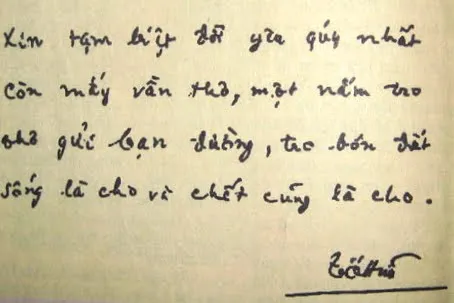 Xin tạm biệt đời yêu quý nhất
Còn mấy vần thơ, một nắm tro
Thơ gửi bạn đường, tro bón đất
Sống là cho và chết cũng là cho.
Tố Hữu